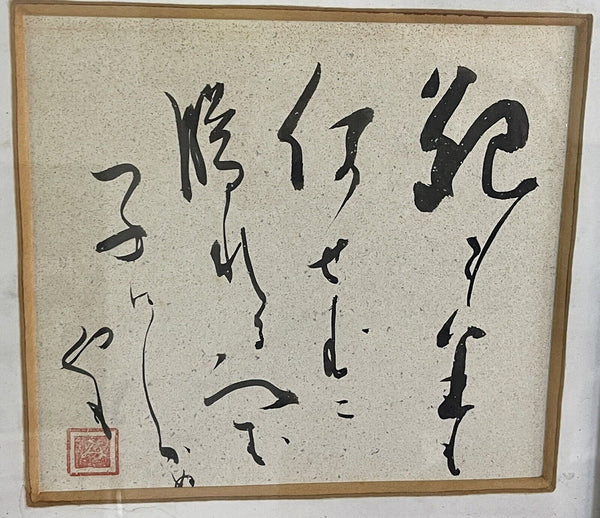 銀も金も
何せむに
勝れる宝
子にしかめ
やも